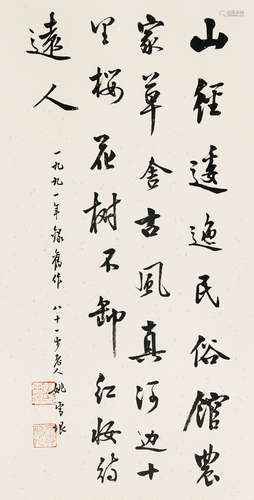 山径逶迤民俗馆农
家草舍古风真河边十
里樱花树不卸红妆待
远人
一九九一年録舊作 八十一岁老人姚雪垠